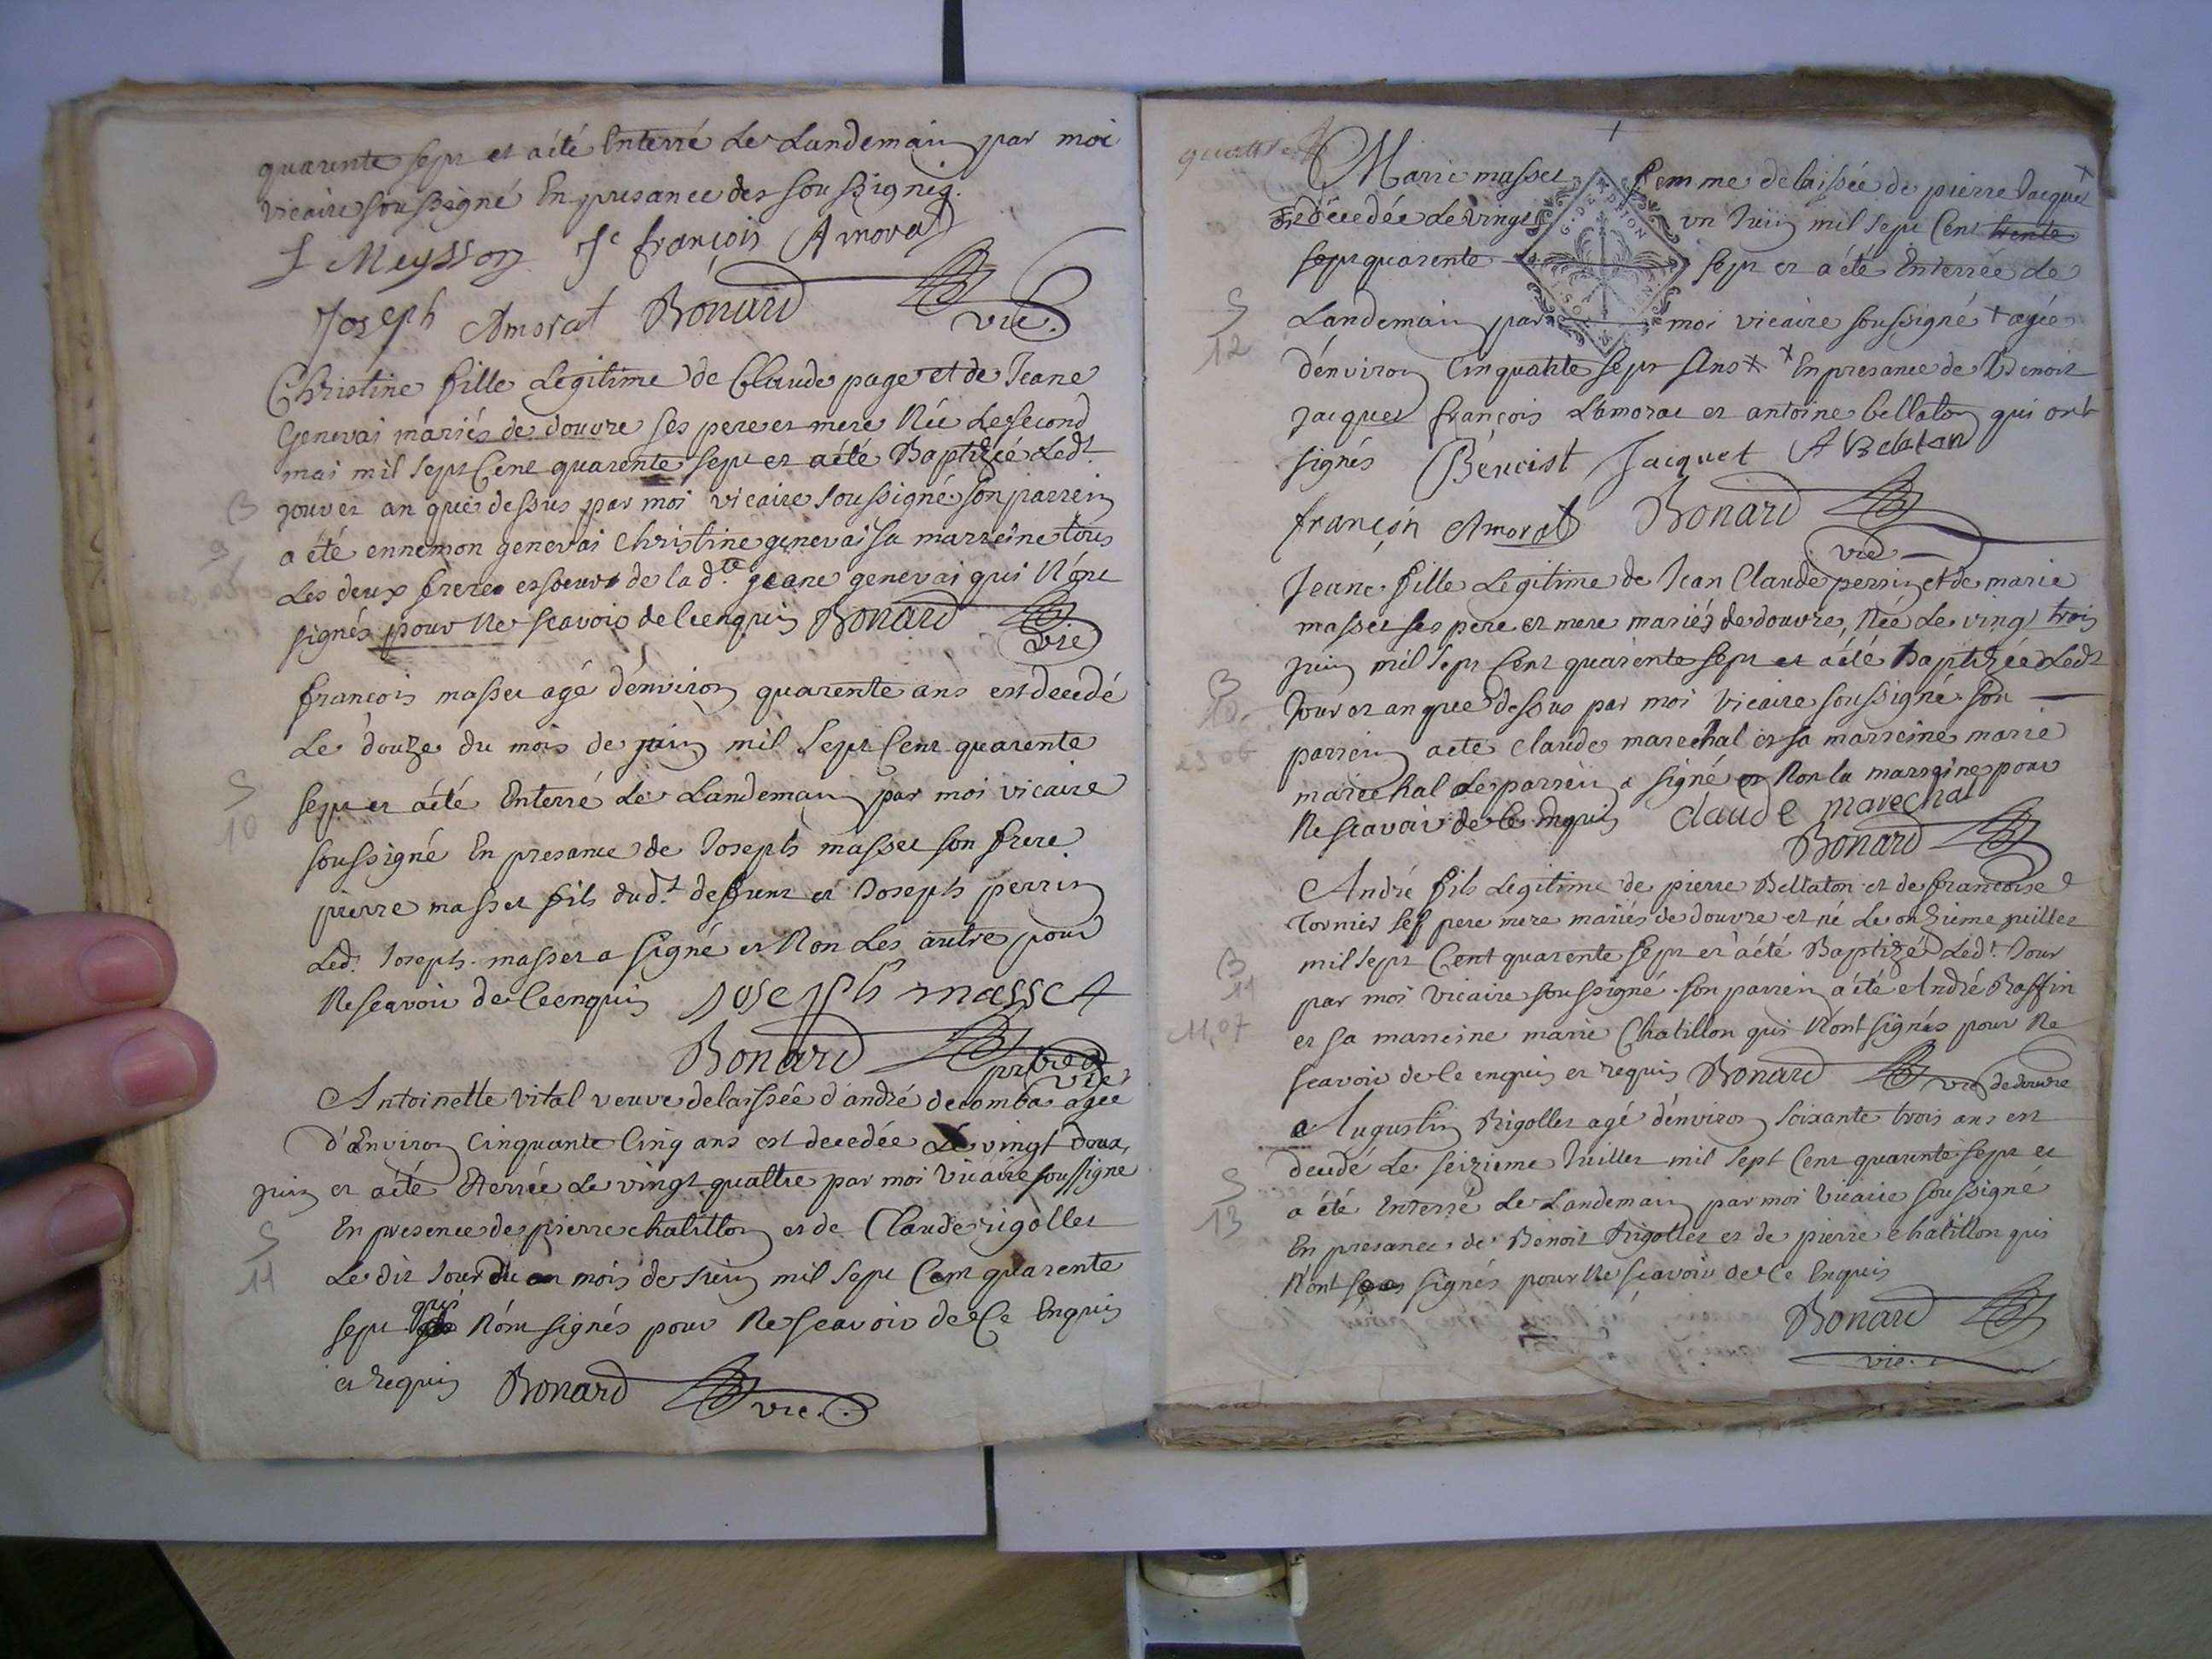 quarente sept et a été Enterré Le Landemain par moi
vicaire soussigné En presance des soussignés.
J Meysson Je françois Amorat
Joseph Amorat Bonard vic.
Christine fille Legitime de Claude page et de Jeane
Genevai mariés de douvre ses pere et mere Née Le second
mai mil sept Cent quarente sept et a été Baptizée Ledt.
jour et an que dessus par moi vicaire soussigné son parrein
a été ennemon genevai Christine genevai sa marreine tous
Les deux freres et soeurs de la dte jeane genevai qui N'ont
signés pour Ne scavoir de ce enquis Bonard vic
B
9
françois masset agé d'environ quarente ans est decedé
Le douze du mois de juin mil sept Cent quarente
sept et a été Enterré Le Landemain par moi vicaire
soussigné En presance de Joseph masset son frere
pierre masset fils dudt. deffunt et Joseph perrin
Ledt. Joseph masset a signé et Non Les autre pour
Ne scavoir de ce enquis joseph masset
Bonard
S
10
Antoinette vital veuve delaissée d'andré decomba agée
d'Environ Cinquante Cinq ans est decedée Le vingt doux
juin et a été Eterrée Le vingt quattre par moi Vicaire soussigné
En presence de pierre chatillon et de Claude rigollet
Le dit Jour du mois de Juin mil sept Cent quarente
sept qui N'ont signés pour Ne scavoir de Ce Enquis
et Requis Bonard vic.
S
11
quattre
Marie masset femme delaissée de pierre Jacquet
decedée Le vingt un Juin mil sept Cent trente
sept quarente sept et a été Enterrée Le
Landemain par moi vicaire soussigné + agée
d'environ Cinquante sept Ans + + En presance de Benoit
Jacquet françois L'amorat et antoine bellaton qui ont
signés Benoist Jacquet A Belaton
françois Amorat Bonard vic
S
12
Jeane fille Legitime de Jean Claude perrin et de marie
masset ses pere et mere mariés de douvre, Née Le vingt trois
juin mil sept Cent quarente sept et a été baptizée Ledt
Jour et an que dessus par moi Vicaire soussigné son
parrein a eté Claude marechal et sa marreine marie
marechal Le parrein a signé et Non la marreine pour
Ne scavoir de Ce Enquis claude marechal
Bonard
B
10
23 06
André fils Legitime de pierre Bellaton et de francoise
Tornier ses pere mere mariés de douvre et né Le onzieme juillet
mil sept Cent quarente sept et a été Baptizé Ledt. Jour
par moi Vicaire soussigné son parrein a été André Raffin
et sa marreine marie Chatillon qui N'ont signés pour Ne
scavoir de Ce enquis et requis Bonard vic de douvre
B
11
11,07
Augustin Rigollet agé d'environ soixante trois ans est
decedé Le seizieme Juillet mil sept Cent quarente sept et
a été Enterré Le Landemain par moi Vicaire soussigné
En presance de Benoit Rigollet et de pierre chatillon qui
N'ont signés pour Ne scavoir de Ce Enquis
Bonard
vic.
S
13